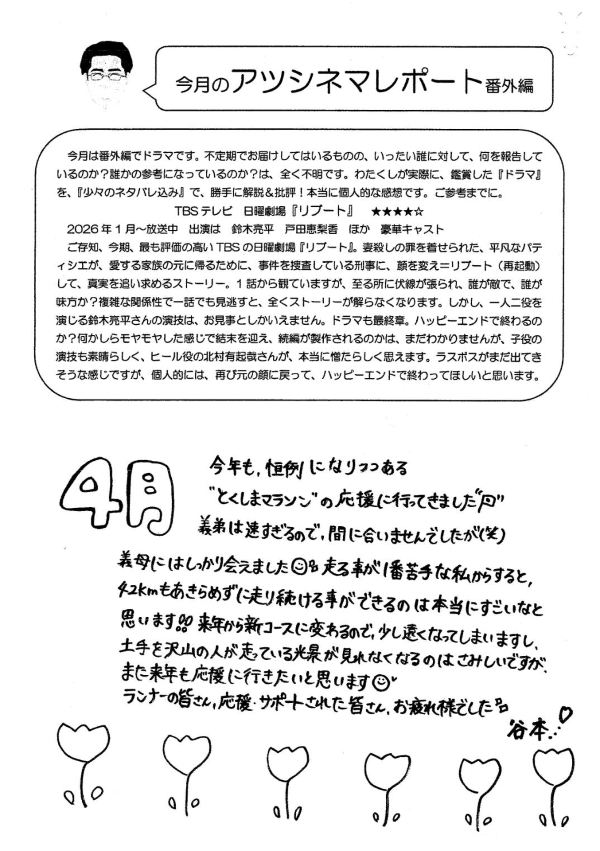 今月のアツシネマレポート番外編
今月は番外編でドラマです。不定期でお届けしてはいるものの、いったい誰に対して、何を報告して
いるのか?誰かの参考になっているのか?は、全く不明です。わたくしが実際に、鑑賞した『ドラマ』
を、『少々のネタバレ込み』で、勝手に解説&批評!本当に個人的な感想です。ご参考までに。
TBSテレビ 日曜劇場『リブート』 ★★★★☆
2026年1月～放送中 出演は 鈴木亮平 戸田恵梨香 ほか 豪華キャスト
ご存知、今期、最も評価の高いTBSの日曜劇場『リブート』。妻殺しの罪を着せられた、平凡なパティ
シエが、愛する家族の元に帰るために、事件を捜査している刑事に、顔を変え=リブート(再起動)
して、真実を追い求めるストーリー。1話から観ていますが、至る所に伏線が張られ、誰が敵で、誰が
味方か?複雑な関係性で一話でも見逃すと、全くストーリーが解らなくなります。しかし、一人二役を
演じる鈴木亮平さんの演技は、お見事としかいえません。ドラマも最終章。ハッピーエンドで終わるの
か?何かしらモヤモヤした感じで結末を迎え、続編が製作されるのかは、まだわかりませんが、子役の
演技も素晴らしく、ヒール役の北村有起哉さんが、本当に憎たらしく思えます。ラスボスがまだ出てき
そうな感じですが、個人的には、再び元の顔に戻って、ハッピーエンドで終わってほしいと思います。
4月
今年も、恒例になりつつある
"とくしまマラソン"の応援に行ってきました
義弟は速すぎるので、間に合いませんでしたが(笑)
義母にはしっかり会えました 走る事が1番苦手な私からすると、
42kmもあきらめずに走り続ける事ができるのは本当にすごいなと
思います!! 来年から新コースに変わるので、少し遠くなってしまいますし、
土手を沢山の人が走っている光景が見れなくなるのはさみしいですが、
また来年も応援に行きたいと思います
ランナーの皆さん、応援・サポートされた皆さん、お疲れ様でした
谷本